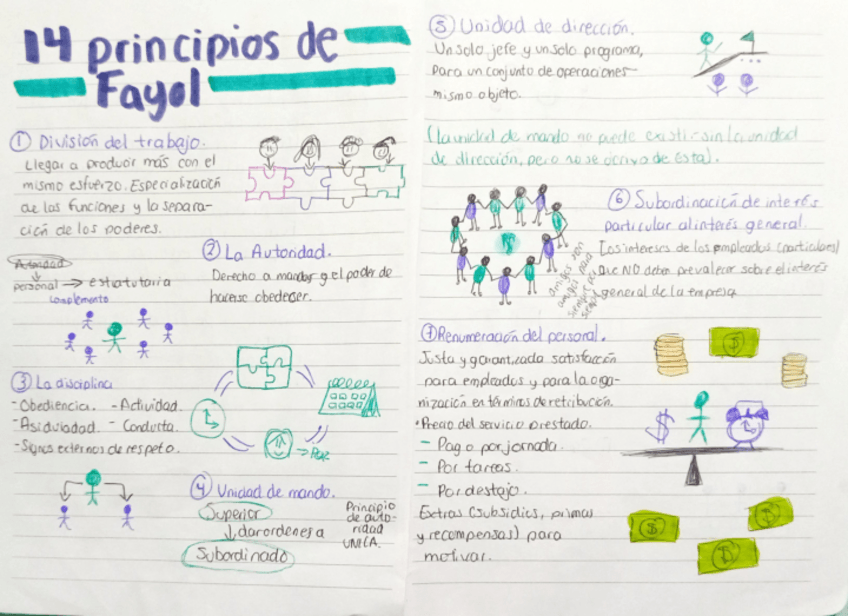 14 principios de
Fayol
① División del trabajo.
Llegar a producir más con el
mismo esfuerzo. Especialización
de las funciones y la separa-
ción de los poderes.
② La Autoridad.
Autoridad
personal → estatutaria
complemento
Derecho a mandar y el poder de
hacerse obedecer.
③ La disciplina
- Obediencia. - Actividad.
- Asiduidad - Conducta.
- Signos externos de respeto.
→ Paz.
④ Unidad de mando.
Superior
↓ dar ordenes a
Subordinado
Principio
de auto-
ridad
UNICA.
⑤ Unidad de dirección.
Un solo jefe y un solo programa,
para un conjunto de operaciones
mismo objeto.
(La unidad de mando no puede existir sin la unidad
de dirección, pero no se deriva de esta).
⑥ Subordinación de interés
particular al interés general.
Los intereses de los empleados (particulares)
que NO deben prevalecer sobre el interés
general de la empresa
amigos son
amigos para
siempre
⑦ Renumeración del personal.
Justa y garantizada satisfacción
para empleados y para la oga-
nización en términos de retribución.
• Precio del servicio prestado.
- Pago por jornada.
- Por tareas.
- Por destajo.
Extras (subsidios, primas
y recompensas) para
motivar.
$
$
$
$
$